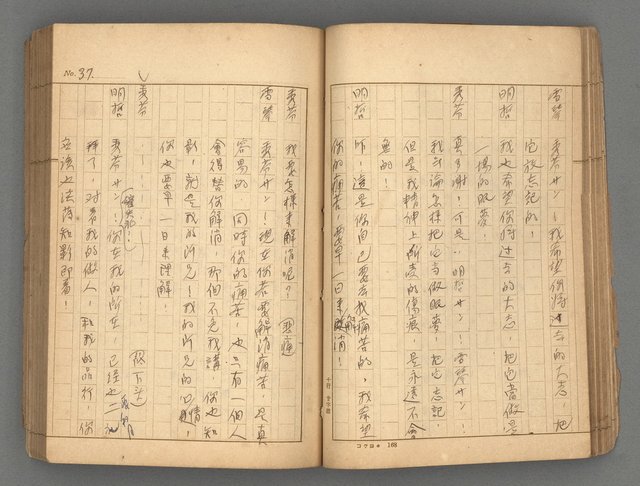 雪琴　秀芬サン！我希望你將過去的大志，把
它放忘記的！
明哲　我也希望你將过去的大志，把它當做是
一場的眼夢！
秀芬　真多謝！可是！明哲サン！！雪琴サン！
我無論怎樣把它当做眼夢，把它忘記，
但是我精神上所受的傷痕，是永遠不會
無的！
明哲　所！這是你自己要去找痛苦的，我希望
你的痛苦，要早一日來解消！
十行 廿字詰
コクヨ 168
No. 37.
秀芬　我要怎樣來解消呢？（悲痛）
雪琴　秀芬サン！現在你若要解消痛苦，是真
容易的，同時你的痛苦，也只有一個人
會得替你解消，那個不免我講，你也知
影，就是我的所兄！我的所兄的心情
你也要早一日來理解！
秀芬　！——！——！（頭下去）
明哲　秀芬サン！你在我的所在，已經也二
拜了，对着我的做人，和我的品行，你
应該也法得知影即着！